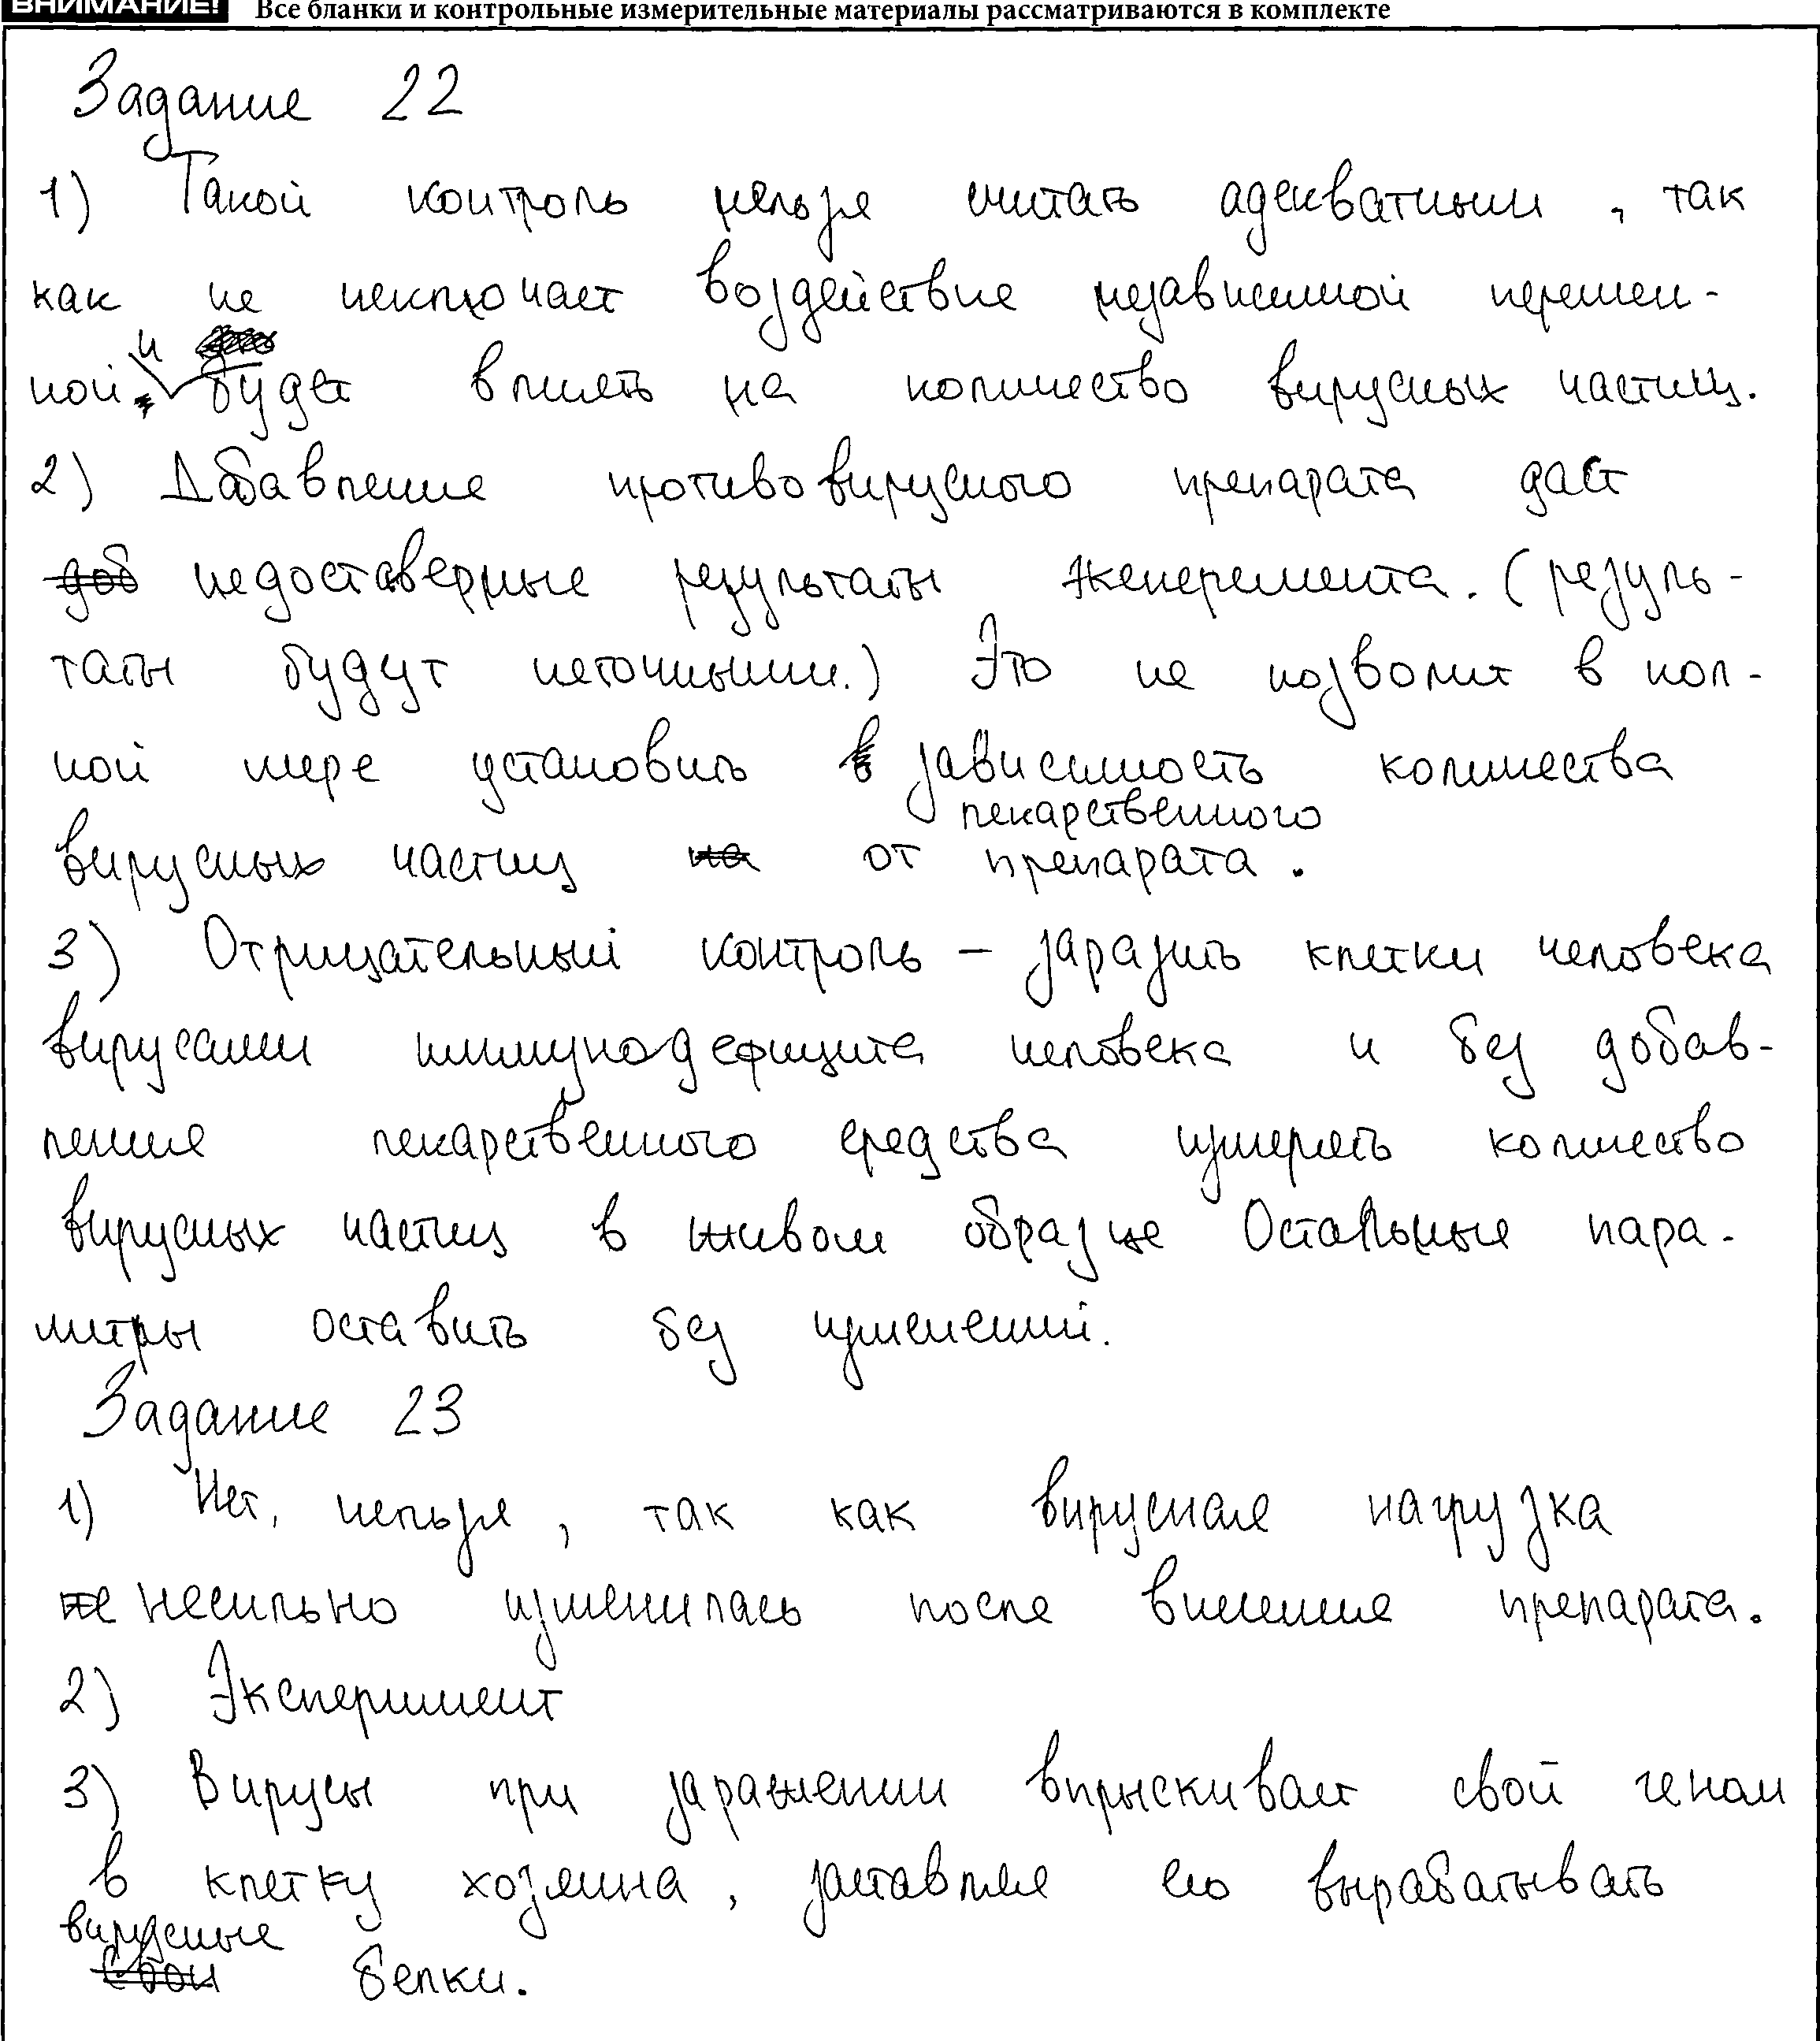 ВНИМАНИЕ! Все бланки и контрольные измерительные материалы рассматриваются в комплекте
Задание 22
1) Такой контроль нельзя считать адекватным, так
как не исключает воздействие независимой перемен-
ной и будет влиять на количество вирусных частиц.
2) Добавление противовирусного препарата даст
недоставерные результаты эксперемента. (резуль-
таты будут неточными.) Это не позволит в пол-
ной мере установить зависимость количества
вирусных частиц от лекарственного препарата.
3) Отрицательный контроль – заразить клетки человека
вирусами иммунодефицита человека и без добав-
ления лекарственного средства измерять количество
вирусных частиц в живом образце Остальные пара-
митры оставить без изменений.
Задание 23
1) Нет, нельзя, так как вирусная нагрузка
несильно изменилась после внесения препарата.
2) Эксперимент
3) Вирусы при заражении впрыскивает свой геном
в клетку хозяина, заставляя его вырабатывать
вирусные белки.